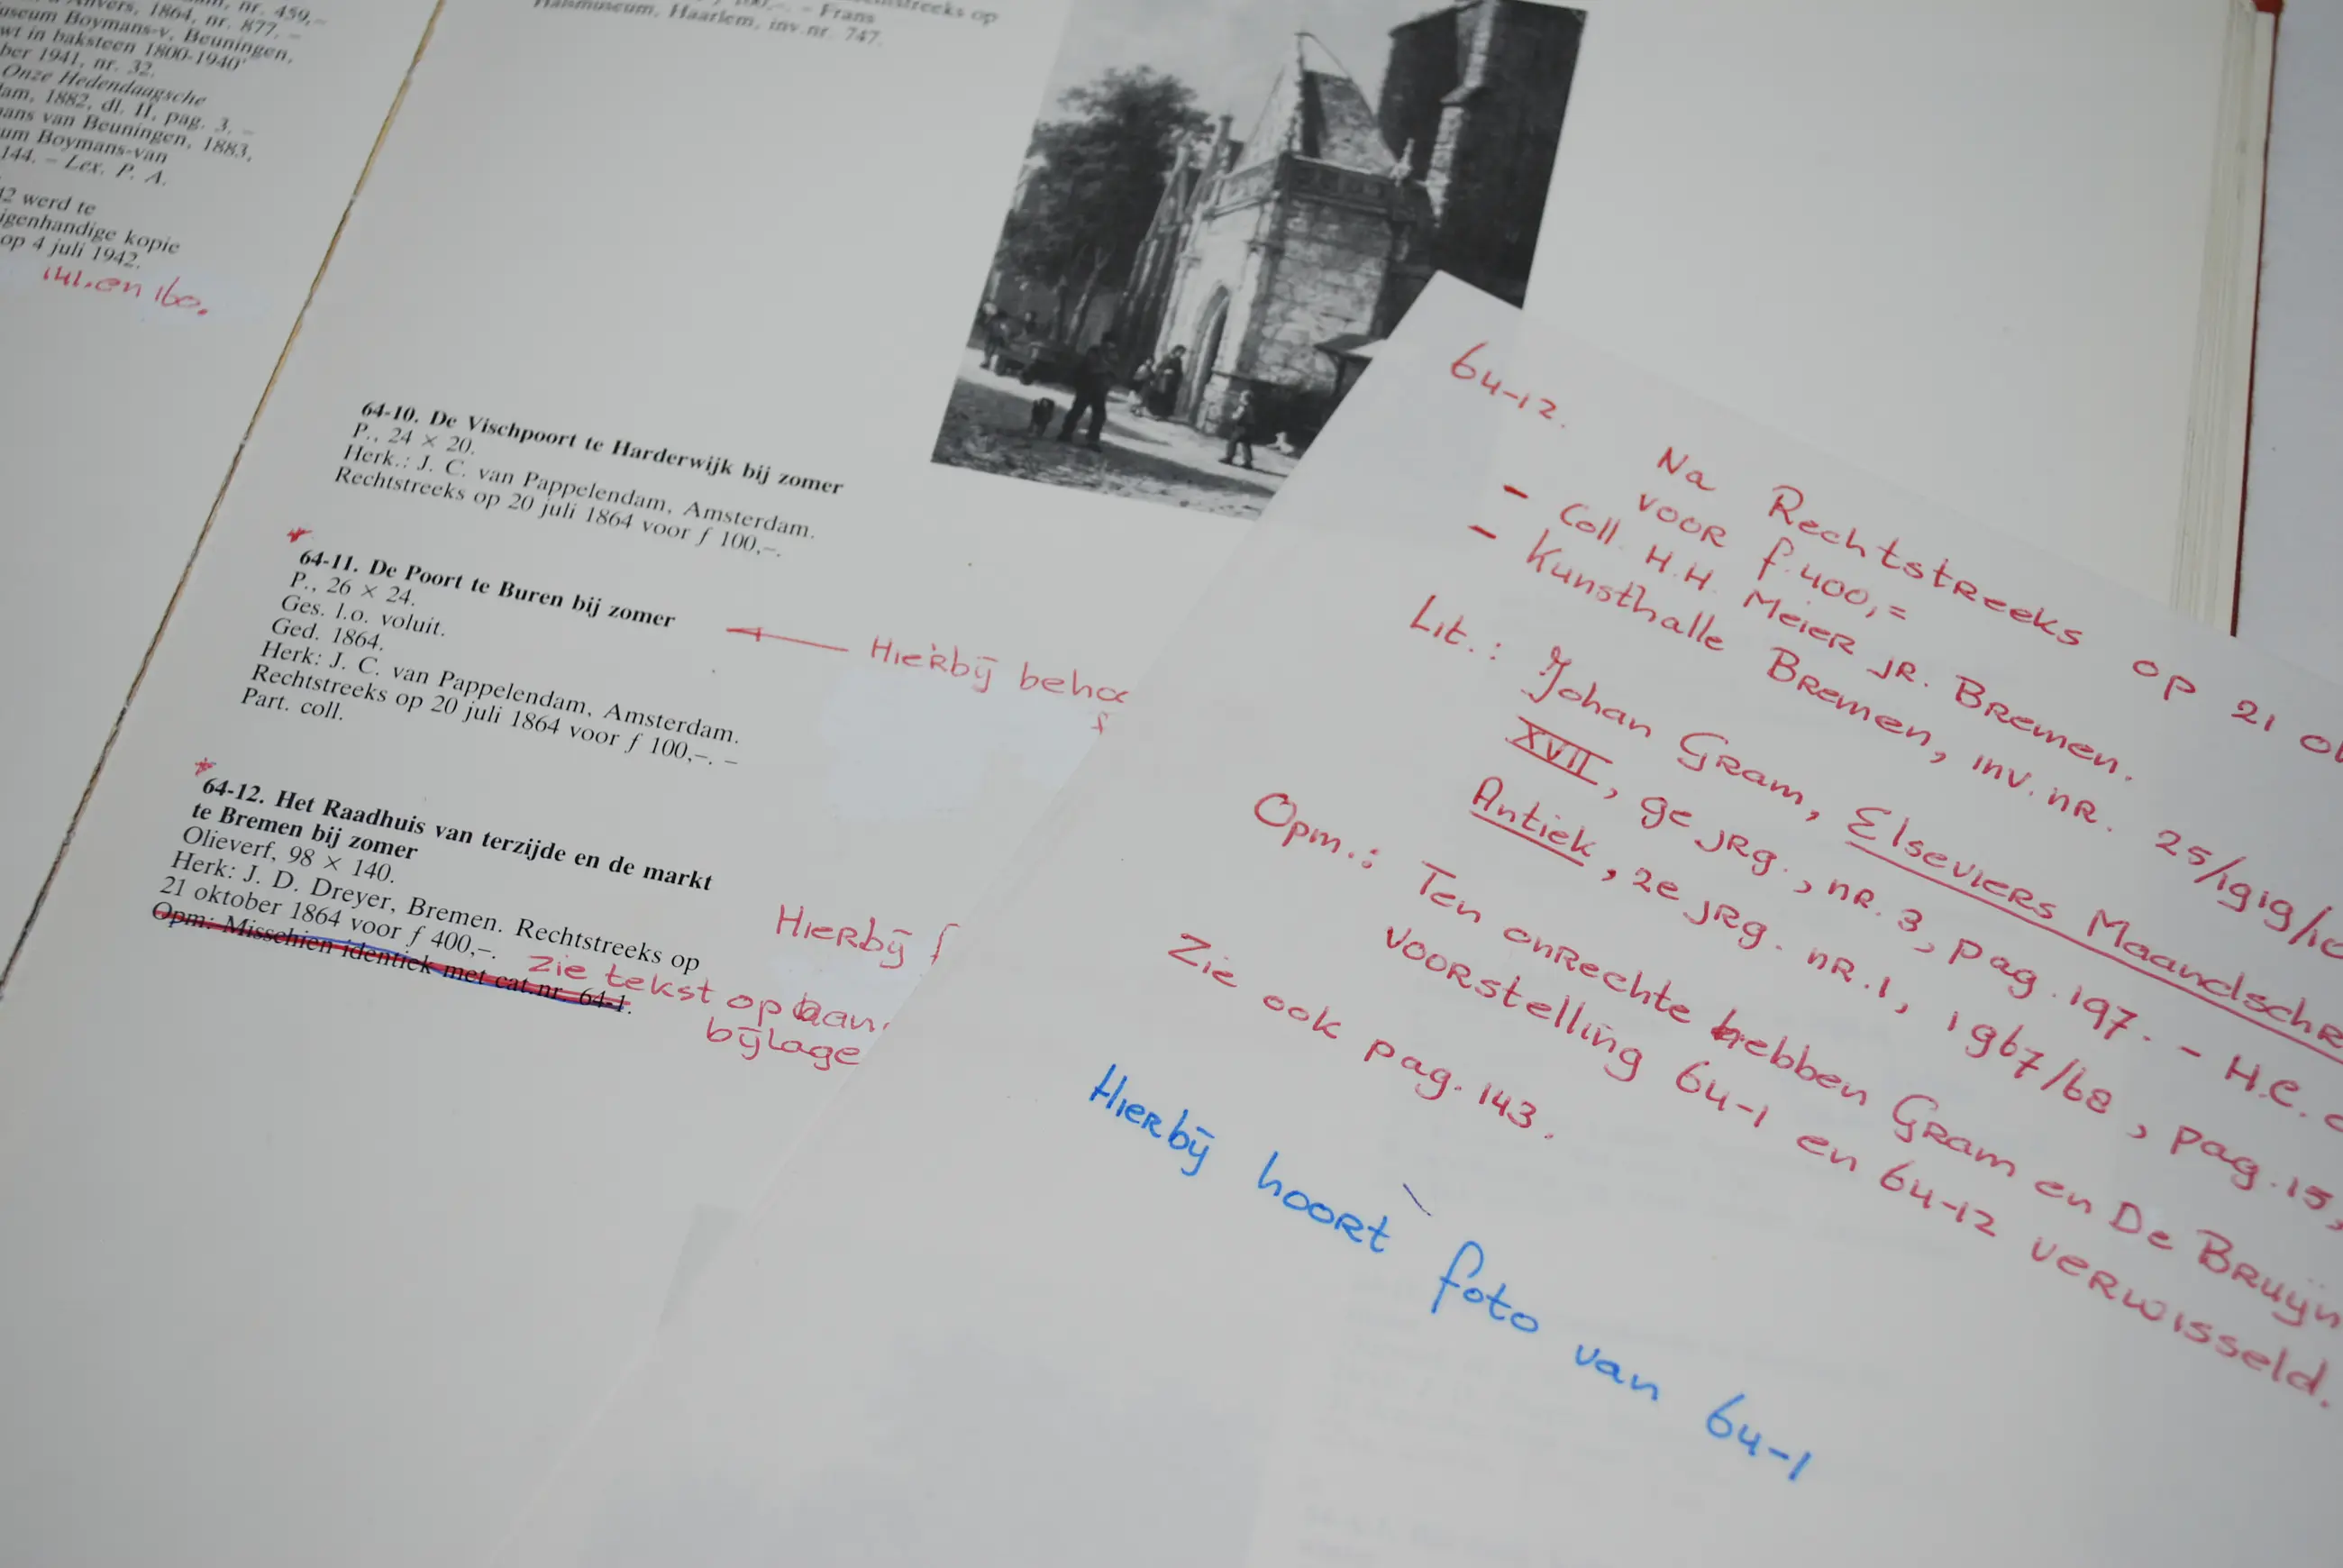 nr. 459,–
Anvers, 1864, nr. 877. –
Museum Boymans-v. Beuningen,
in baksteen 1800-1940'
1941, nr. 32.
Onze Hedendaagsche
1882, dl. II, pag. 3. –
van Beuningen, 1883,
Boymans-van
144. – Lex. P. A.
werd te
eigenhandige kopie
op 4 juli 1942.
141. en 160.
op
– Frans
Halsmuseum, Haarlem, inv.nr. 747.
64-10. De Vischpoort te Harderwijk bij zomer
P., 24 × 20.
Herk.: J. C. van Pappelendam, Amsterdam.
Rechtstreeks op 20 juli 1864 voor ƒ 100,–.
*
64-11. De Poort te Buren bij zomer
P., 26 × 24.
Ges. l.o. voluit.
Ged. 1864.
Herk: J. C. van Pappelendam, Amsterdam.
Rechtstreeks op 20 juli 1864 voor ƒ 100,–. –
Part. coll.
Hierbij
*
64-12. Het Raadhuis van terzijde en de markt
te Bremen bij zomer
Olieverf, 98 × 140.
Herk: J. D. Dreyer, Bremen. Rechtstreeks op
21 oktober 1864 voor ƒ 400,–.
Opm: Misschien identiek met cat.nr. 64-1.
Hierbij f
zie tekst op
bijlage
64-12.
Na Rechtstreeks op 21
voor f. 400,=
- Coll. H.H. Meier jr. Bremen.
- Kunsthalle Bremen, inv. nr. 25/1919/
Lit.: Johan Gram, Elseviers
XVII, 9e jrg., nr. 3, pag. 197. - H.C.
Antiek, 2e jrg. nr. 1, 1967/68, pag. 15,
Opm.: Ten onrechte hebben Gram en De Bruijn
voorstelling 64-1 en 64-12 verwisseld.
Zie ook pag. 143.
Hierbij hoort foto van 64-1